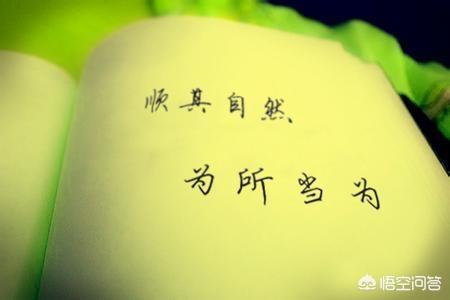 顺其自然
为所当为
悟空问答